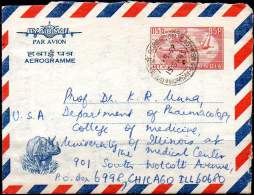 PAR AVION
हवाई पत्र
AEROGRAMME
85 85
INDIA
Prof. Dr. K. R. Unna,
U.S.A Department of Pharmacology
College of medicine,
University of Illinois at
the Medical Center
901 South Wolcott Avenue,
P.O. Box 6998, CHICAGO ILL 60680